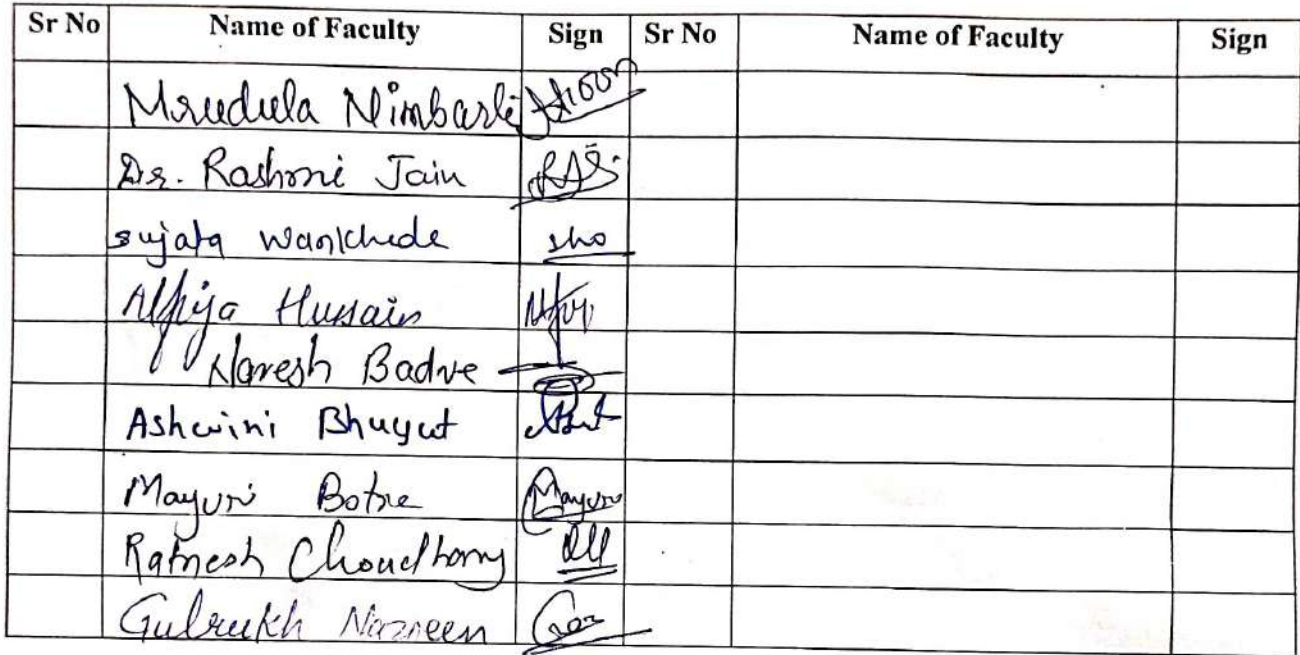 Sr No Name of Faculty Sign Sr No Name of Faculty Sign
Mrudula Nimbarte
Dr. Rashmi Jain
sujata wankhede
Alfiya Hussain
Naresh Badve
Ashwini Bhuyut
Mayuri Botre Mayuri
Ratnesh Choudhary
Gulrukh Nazneen